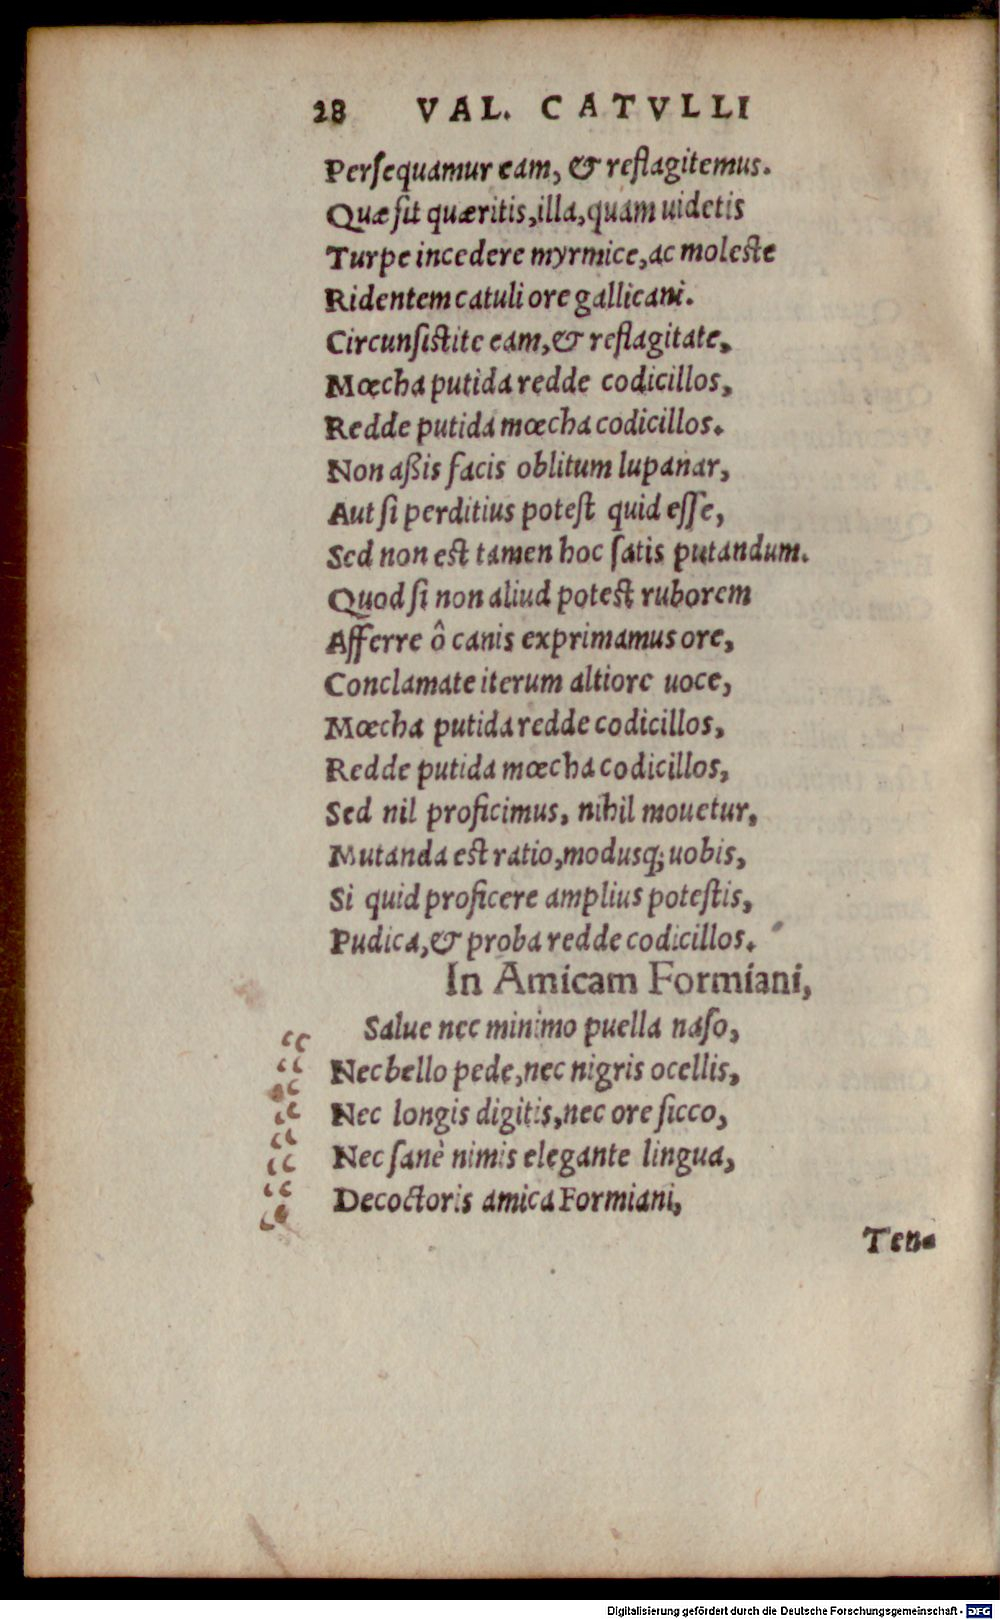 28 VAL. CATVLLI
Persequamur eam, & reflagitemus.
Quæ sit quæritis, illa, quam uidetis
Turpe incedere myrmice, ac moleste
Ridentem catuli ore gallicani.
Circunsistite eam, & reflagitate,
Mœcha putida redde codicillos,
Redde putida mœcha codicillos.
Non aßis facis oblitum lupanar,
Aut si perditius potest quid esse,
Sed non est tamen hoc satis putandum.
Quod si non aliud potest ruborem
Afferre ô canis exprimamus ore,
Conclamate iterum altiore uoce,
Mœcha putida redde codicillos,
Redde putida mœcha codicillos,
Sed nil proficimus, nihil mouetur,
Mutanda est ratio, modusq; uobis,
Si quid proficere amplius potestis,
Pudica, & proba redde codicillos.
In Amicam Formiani,
Salue nec minimo puella naso,
Nec bello pede, nec nigris ocellis,
Nec longis digitis, nec ore sicco,
Nec sanè nimis elegante lingua,
Decoctoris amica Formiani,
Ten-
Digitalisierung gefördert durch die Deutsche Forschungsgemeinschaft - DFG